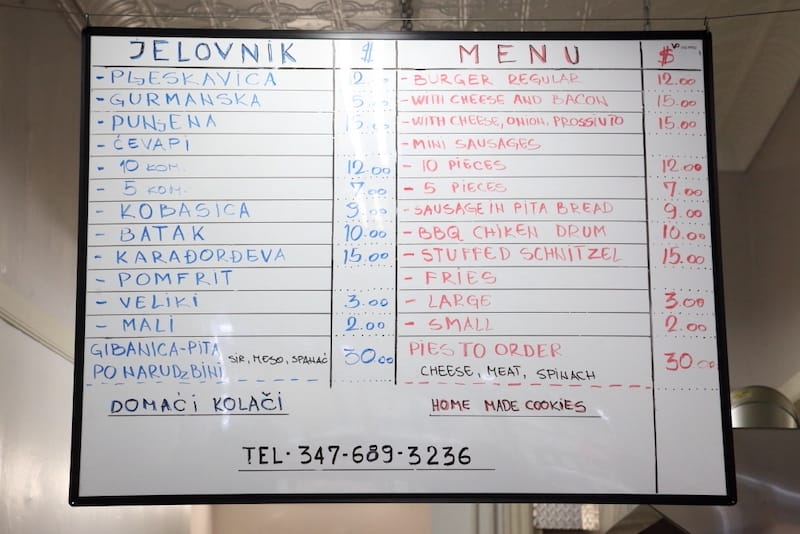 JELOVNIK $
- PLJESKAVICA 12.00
- GURMANSKA 15.00
- PUNJENA 15.00
- ĆEVAPI
- 10 KOM. 12.00
- 5 KOM. 7.00
- KOBASICA 9.00
- BATAK 10.00
- KARAĐORĐEVA 15.00
- POMFRIT
- VELIKI 3.00
- MALI 2.00
GIBANICA-PITA SIR, MESO, SPANAĆ 30.00
PO NARUDZBINI
DOMAĆI KOLAČI
MENU $
- BURGER REGULAR 12.00
- WITH CHEESE AND BACON 15.00
- WITH CHEESE, ONION, PROSSIUTO 15.00
- MINI SAUSAGES
- 10 PIECES 12.00
- 5 PIECES 7.00
- SAUSAGE IN PITA BREAD 9.00
- BBQ CHIKEN DRUM 10.00
- STUFFED SCHNITZEL 15.00
- FRIES
- LARGE 3.00
- SMALL 2.00
PIES TO ORDER 30.00
CHEESE, MEAT, SPINACH
HOME MADE COOKIES
TEL. 347-689-3236